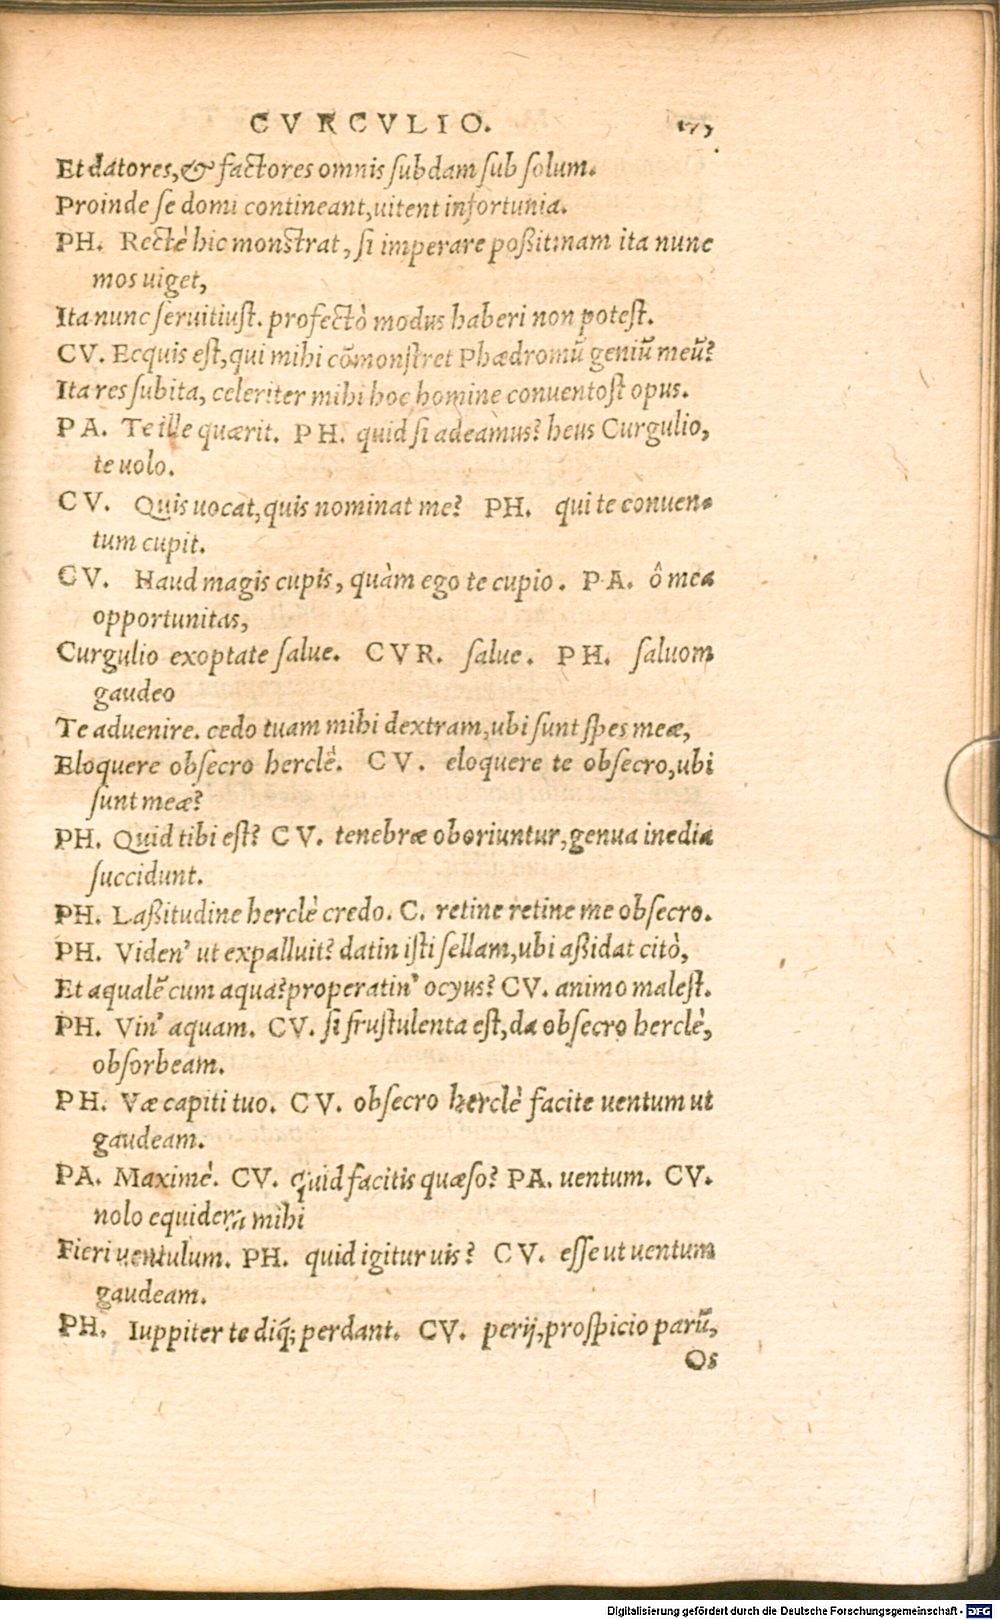 CVRCVLIO. 173
Et datores, & factores omnis subdam sub solum.
Proinde se domi contineant, uitent infortunia.
PH. Rectè hic monstrat, si imperare poßit: nam ita nunc
mos uiget,
Ita nunc seruitiust. profectò modus haberi non potest.
CV. Ecquis est, qui mihi cõmonstret Phædromũ geniũ meũ?
Ita res subita, celeriter mihi hoc homine conuentost opus.
PA. Te ille quærit. PH. quid si adeàmus? heus Curgulio,
te uolo.
CV. Quis uocat, quis nominat me? PH. qui te conuen-
tum cupit.
CV. Haud magis cupis, quàm ego te cupio. PA. ô mea
opportunitas,
Curgulio exoptate salue. CVR. salue. PH. saluom
gaudeo
Te aduenire. cedo tuam mihi dextram, ubi sunt spes meæ,
Eloquere obsecro herclè. CV. eloquere te obsecro, ubi
sunt meæ?
PH. Quid tibi est? CV. tenebræ oboriuntur, genua inedia
succidunt.
PH. Laßitudine herclè credo. C. retine retine me obsecro.
PH. Viden' ut expalluit? datin isti sellam, ubi aßidat citò,
Et aqualẽ cum aqua? properatin' ocyus? CV. animo malest.
PH. Vin' aquam. CV. si frustulenta est, da obsecro herclè,
obsorbeam.
PH. Væ capiti tuo. CV. obsecro herclè facite uentum ut
gaudeam.
PA. Maximè. CV. quid facitis quæso? PA. uentum. CV.
nolo equidem mihi
Fieri uentulum. PH. quid igitur uis? CV. esse ut uentum
gaudeam.
PH. Iuppiter te diq́; perdant. CV. perij, prospicio parũ,
Os
Digitalisierung gefördert durch die Deutsche Forschungsgemeinschaft - DFG